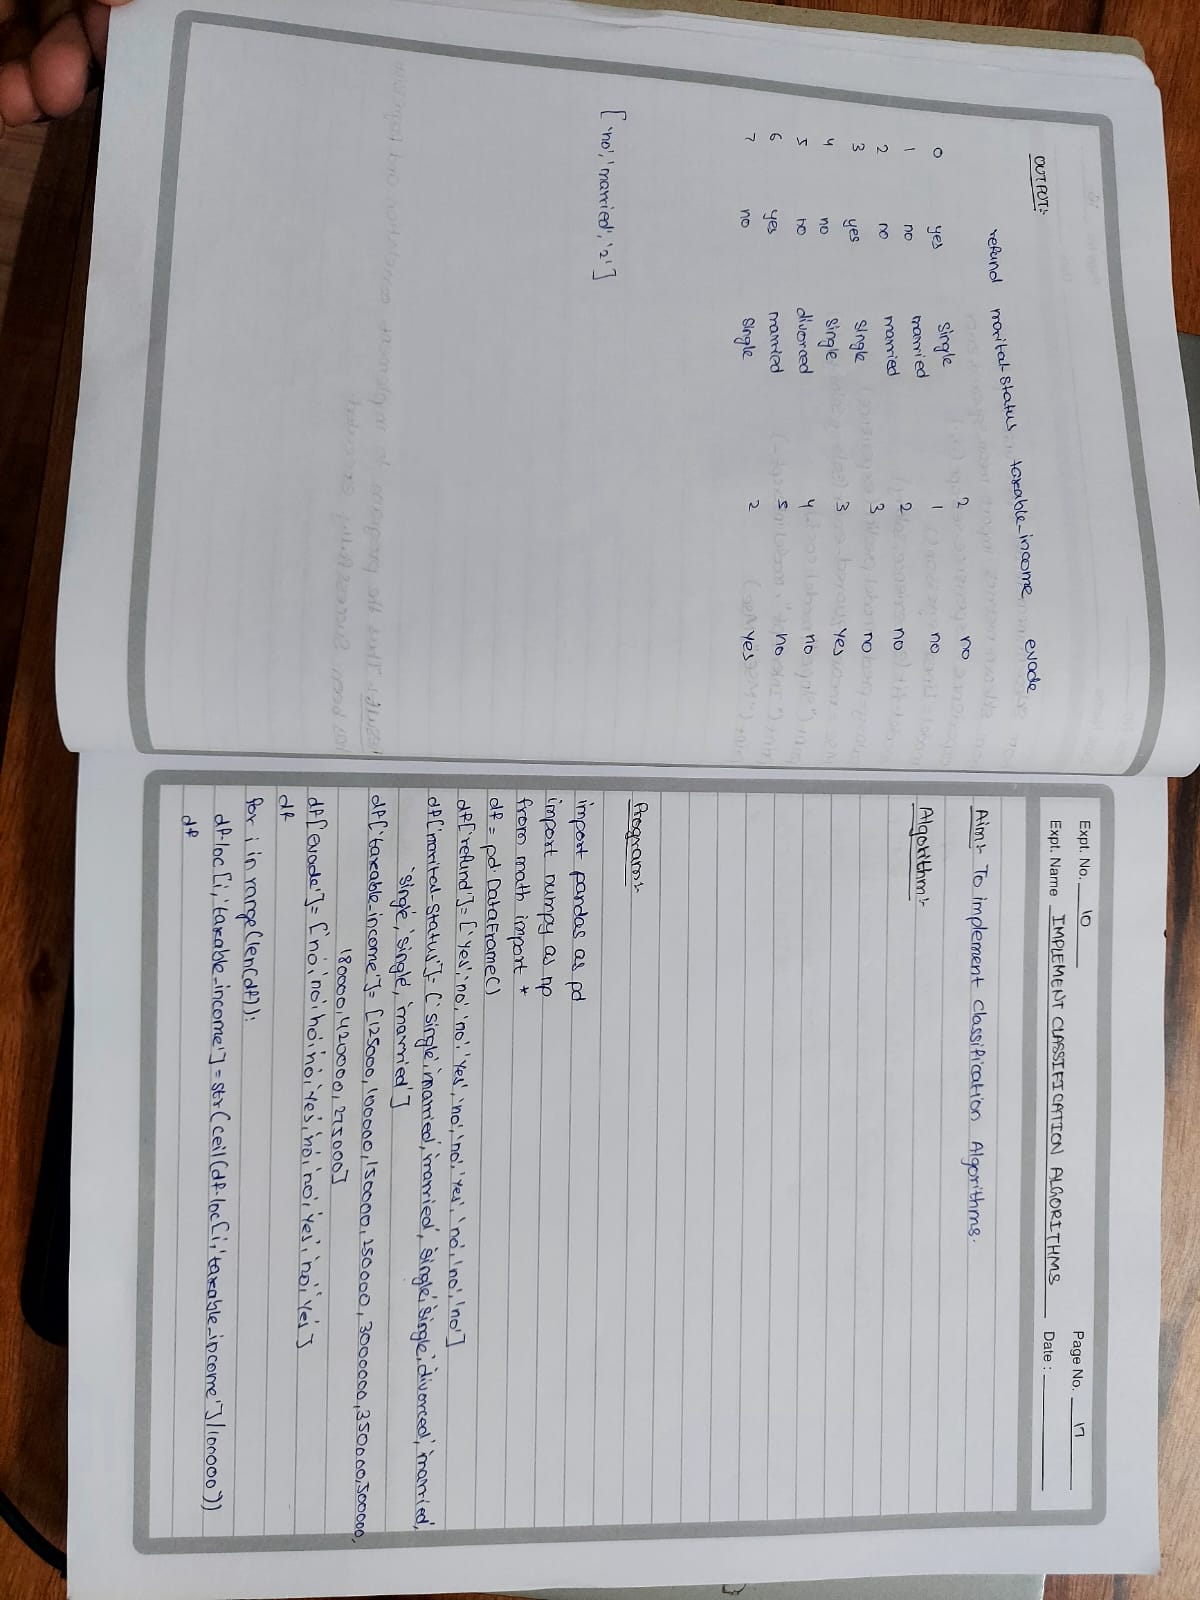 OUTPUT:-
refund marital-status taxable-income evade
0 yes single 2 no
1 no married 1 no
2 no married 2 no
3 yes single 3 no
4 no single 3 yes
5 no divorced 4 no
6 yes married 5 no
7 no single 2 yes
['no', 'married', '2']
Expt. No. 10
Page No. 17
Expt. Name IMPLEMENT CLASSIFICATION ALGORITHMS
Date :
Aim:- To implement Classification Algorithms.
Algorithm:-
Program:-
import pandas as pd
import numpy as np
from math import *
df = pd.DataFrame()
df['refund'] = ['yes','no','no','yes','no','no','yes','no','no','no']
df['marital-status'] = ['single','married','married','single','single','divorced','married',
'single','single','married']
df['taxable-income'] = [125000,100000,150000,250000,3000000,350000,500000,
180000,420000,275000]
df['evade'] = ['no','no','no','no','yes','no','no','yes','no','yes']
df
for i in range(len(df)):
df.loc[i,'taxable-income'] = str(ceil(df.loc[i,'taxable-income']/100000))
df